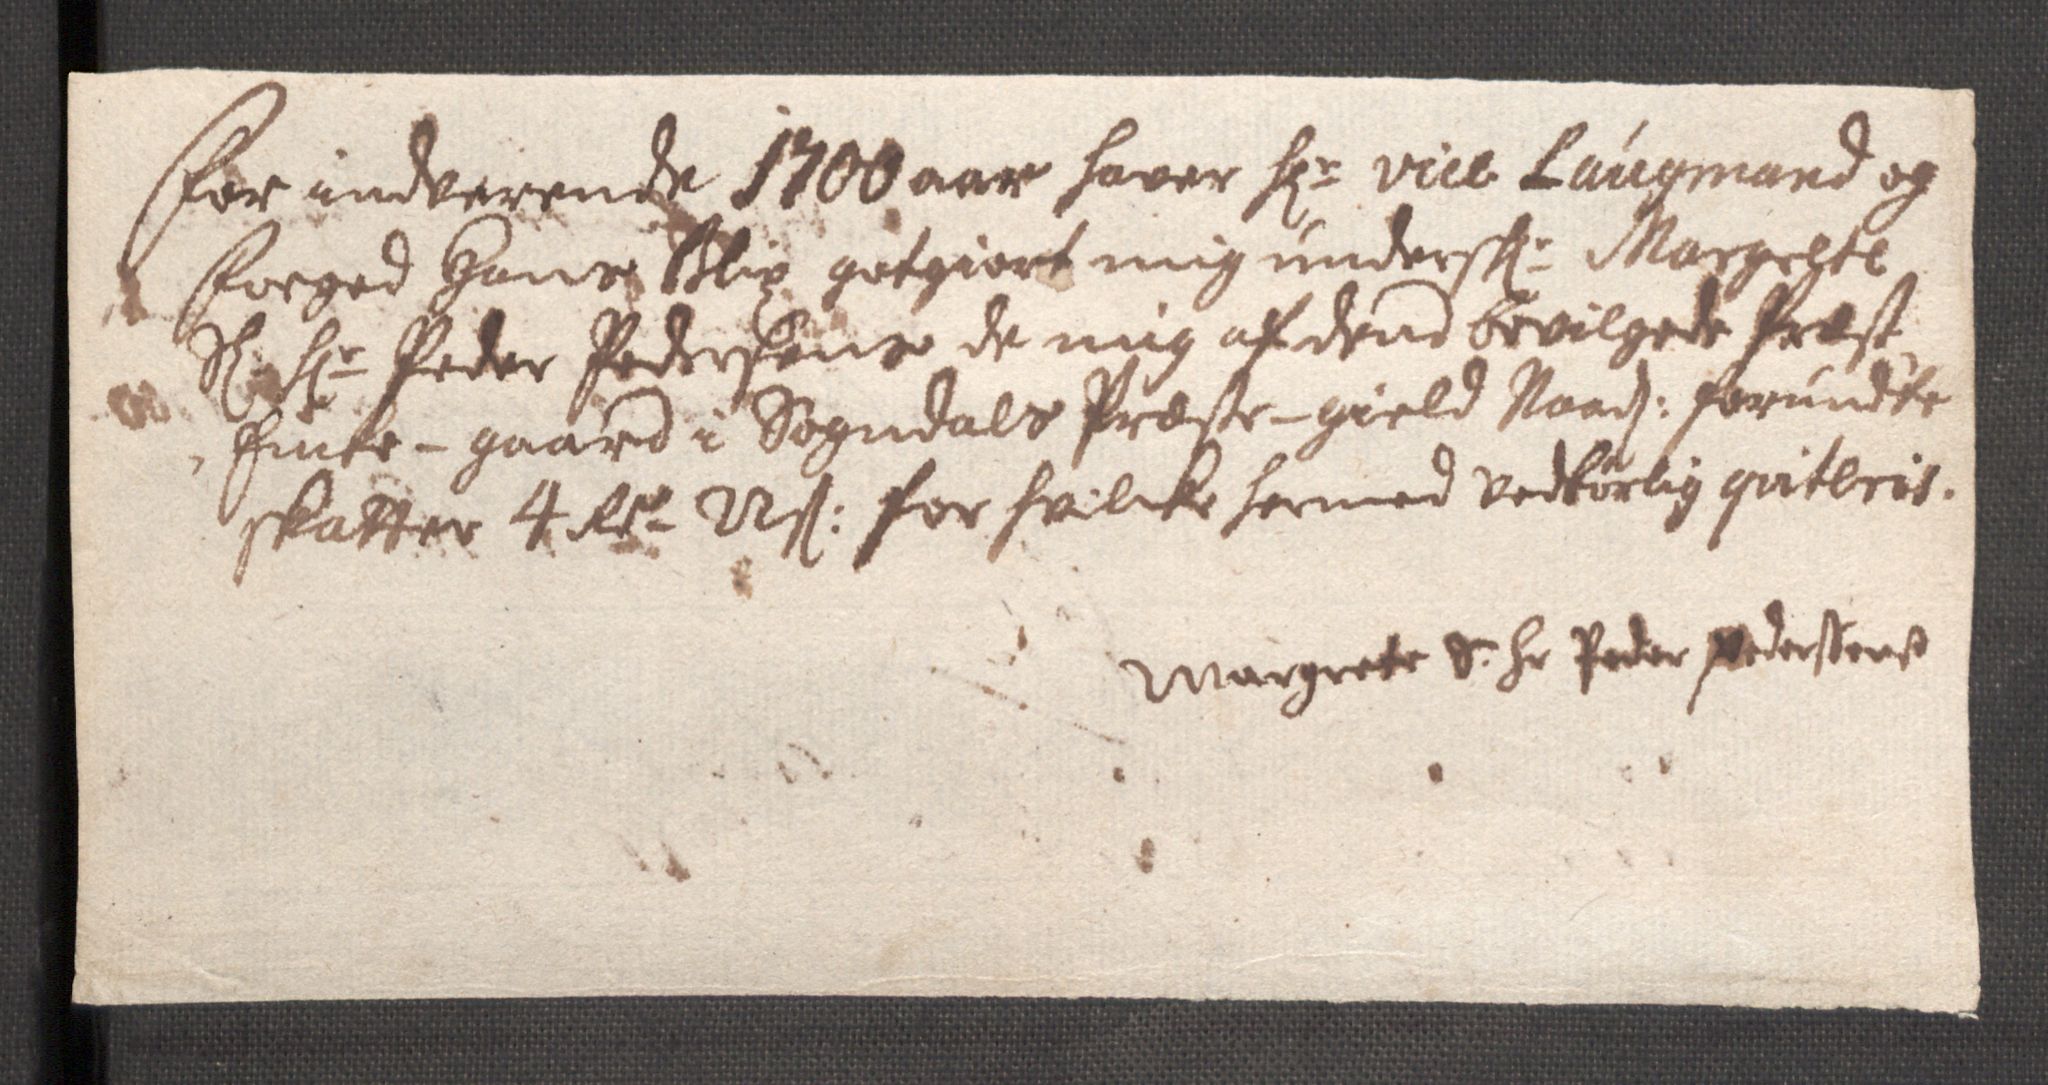 For indverende 1700 aar hafver Hr: vice Laugmand og
Foeged Hans Blix gotgiort mig undersk: Margrete
Sl: Hr: Peder Pedersens de mig af dend bevilgede Præst
Encke-gaard i Sogndals Præste-gield Naadh: forundte
skatter 4 Rd: for hvilcke hermed vedbørlig qviteris.
Margrete S. Hr Peder Pederssens